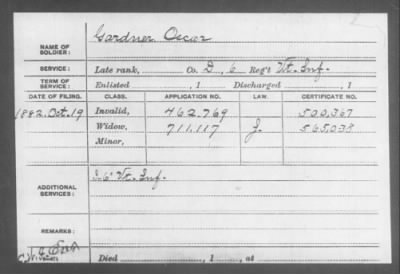 Gardner, Oscar
NAME OF SOLDIER:
SERVICE: Late rank, Co. D, 6 Reg't Vt. Inf.
TERM OF SERVICE: Enlisted , 1 Discharged , 1
DATE OF FILING. CLASS. APPLICATION NO. LAW. CERTIFICATE NO.
1882. Oct. 19 Invalid, 462.769 500,367
Widow, 711.117 J. 565,038
Minor,
ADDITIONAL SERVICES: Vt. Inf.
REMARKS:
Died , 1 , at